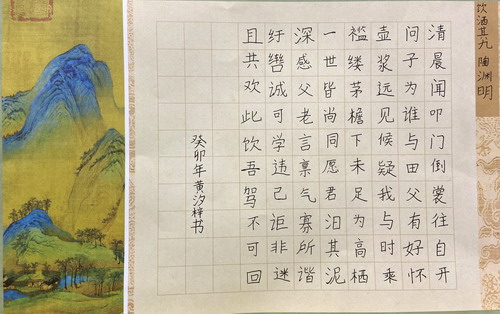 饮酒其九 陶渊明
清晨闻叩门倒裳往自开
问子为谁与田父有好怀
壶浆远见候疑我与时乖
褴缕茅檐下未足为高栖
一世皆尚同愿君汩其泥
深感父老言禀气寡所谐
纡辔诚可学违己讵非迷
且共欢此饮吾驾不可回
癸卯年黄汐梓书